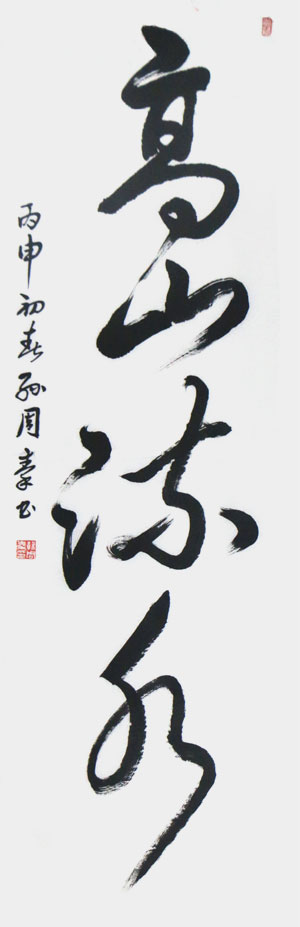 高山流水
丙申初春孙周豪书